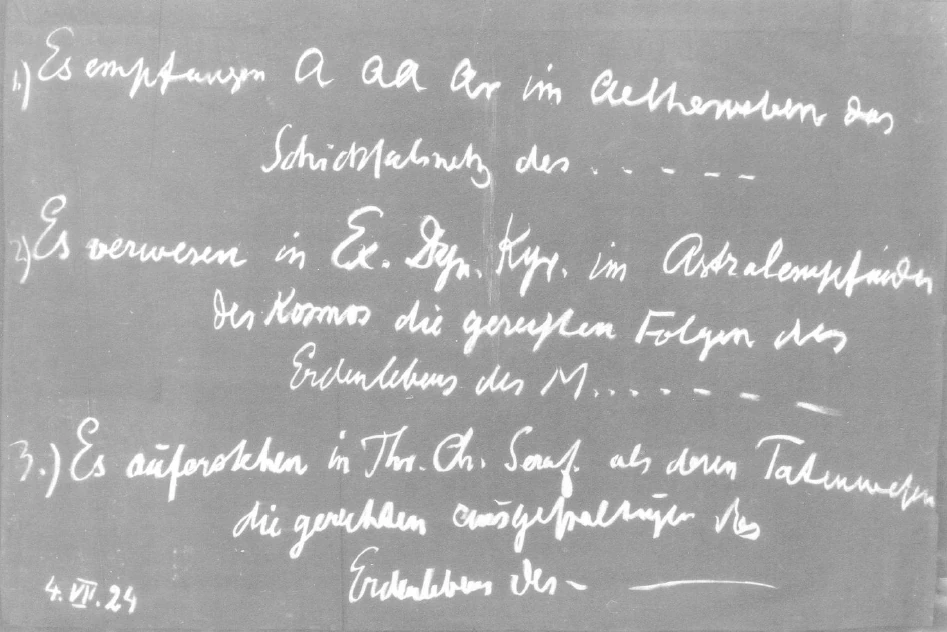 1.) Es empfangen A AA Ar im Aetherweben das
Schicksalsnetz des . . . - - -
2) Es verwesen in Ex. Dyn. Kyr. im Astralempfinden
des Kosmos die gerechten Folgen des
Erdenlebens des M . . . . - - -
3.) Es auferstehen in Thr. Ch. Seraf. als deren Tatenwesen
die gerechten Ausgestaltungen des
Erdenlebens des -
4. VII. 24